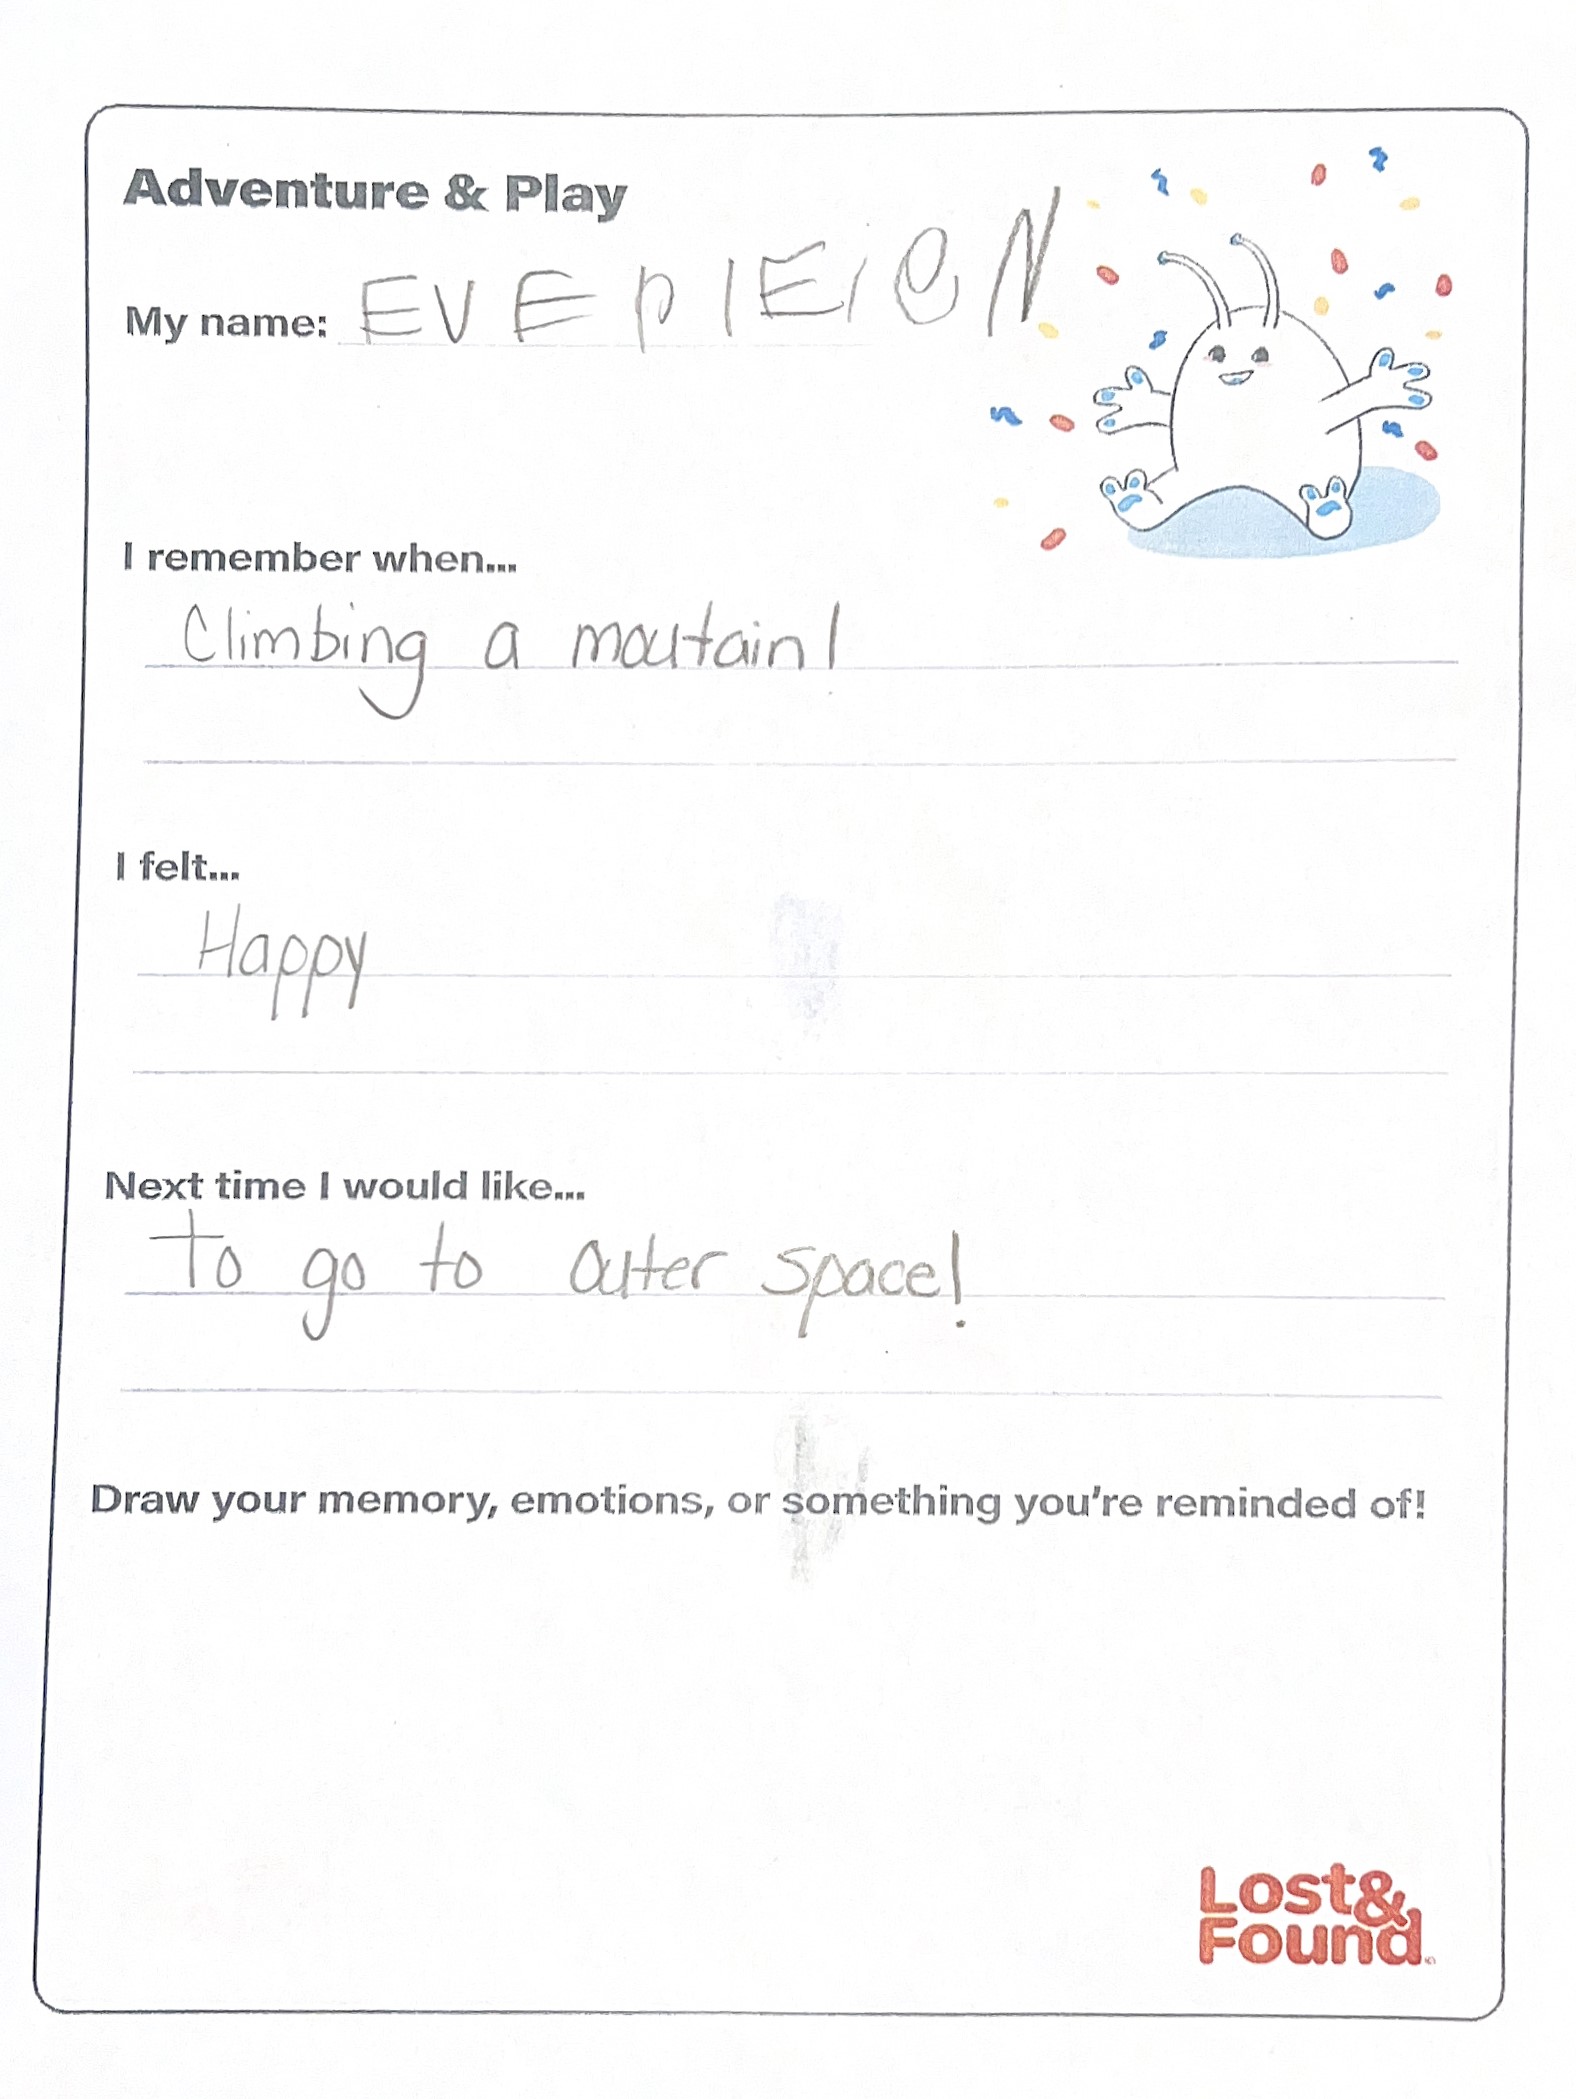 Adventure & Play
My name: EVE PIEiCN
I remember when...
Climbing a moutain!
I felt...
Happy
Next time I would like...
To go to outer space!
Draw your memory, emotions, or something you're reminded of!
Lost&
Found